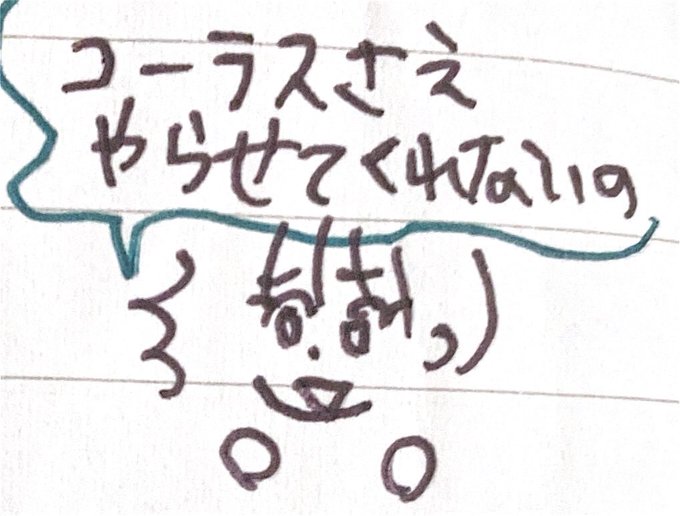 コーラスさえ
やらせてくれないの